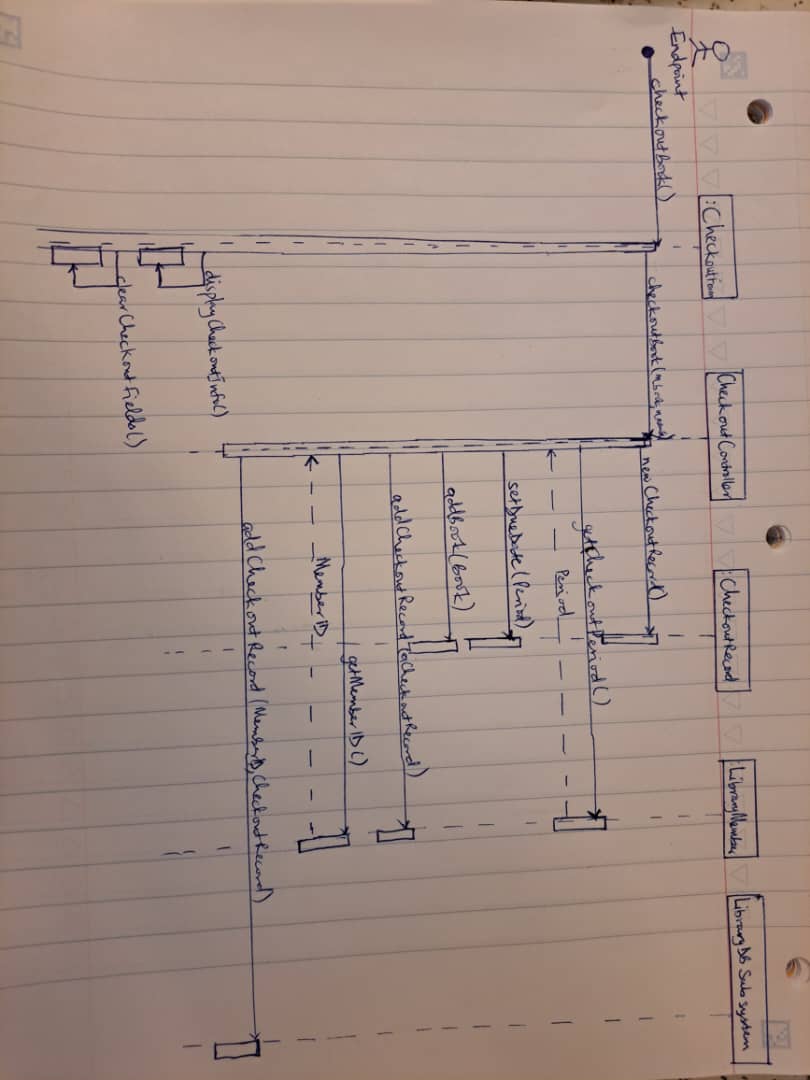 Endpoint
:CheckoutForm
CheckoutController
:CheckoutRecord
:LibraryMember
LibraryDB Subsystem
checkoutbook()
checkoutbook(
newCheckoutRecord()
getCheckoutPeriod()
Period
setDueDate(Period)
addBook(book)
addCheckoutRecord(CheckoutRecord)
getMemberID()
MemberID
addCheckoutRecord(MemberID,CheckoutRecord)
displayCheckoutInfo()
clearCheckoutFields()